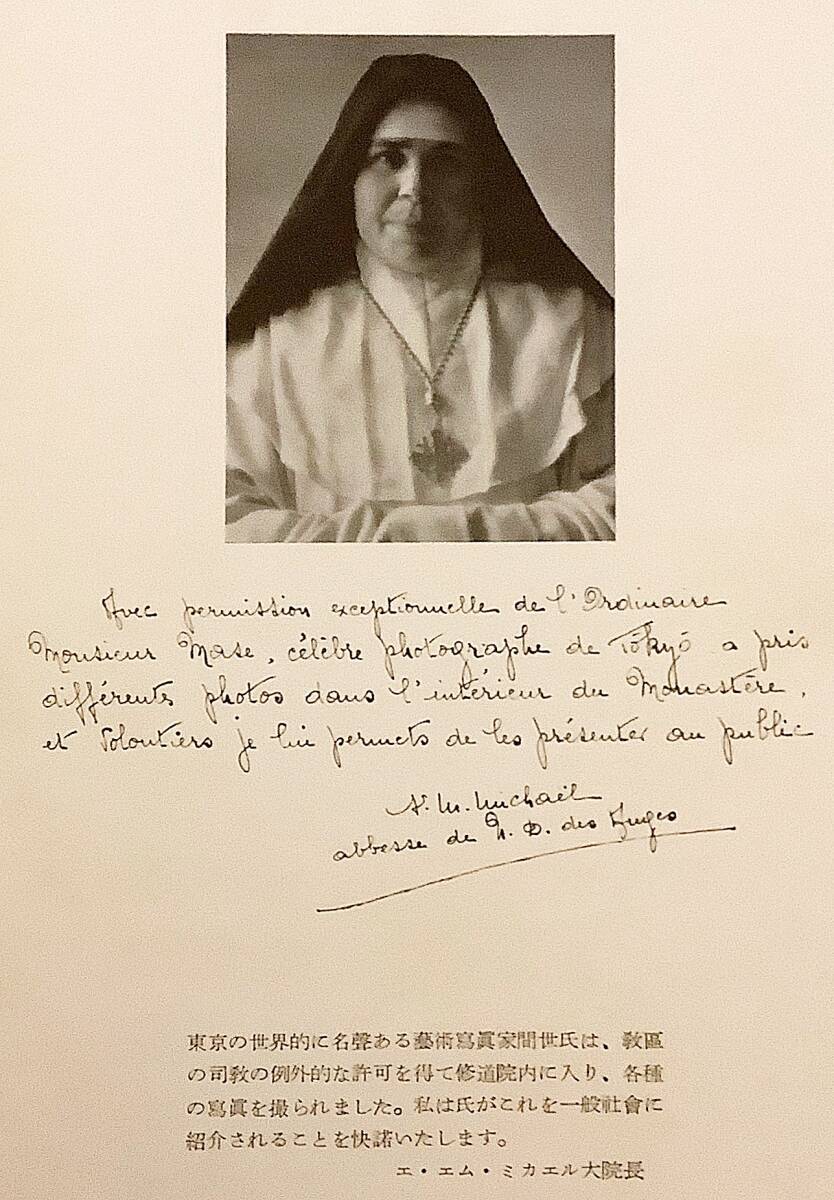 Avec permission exceptionnelle de l'Ordinaire
Monsieur Mase, célèbre photographe de Tōkyō a pris
différents photos dans l'intérieur du Monastère,
et volontiers je lui permets de les présenter au public
A. M. Michaël
abbesse de N. D. des Anges
東京の世界的に名聲ある藝術寫眞家間世氏は、敎區
の司敎の例外的な許可を得て修道院内に入り、各種
の寫眞を撮られました。私は氏がこれを一般社會に
紹介されることを快諾いたします。
エ・エム・ミカエル大院長